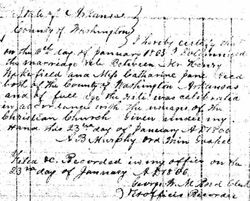 State of Arkansas
County of Washington
I hereby certify that
on the day of January I solemnized
the marriage rite Between Mr Henry
Wakefield and Miss Catharine Jane Reed
both of the County of Washington Arkansas
and of full age the rite was celebrated
in accordance with the usages of the
Christian Church Given under my
Hand this 23rd day of January AD 1866
A B Murphy
Filed &c. Recorded in my office on the
23rd day of January AD 1866.
George W M Reed Clerk
Recorder